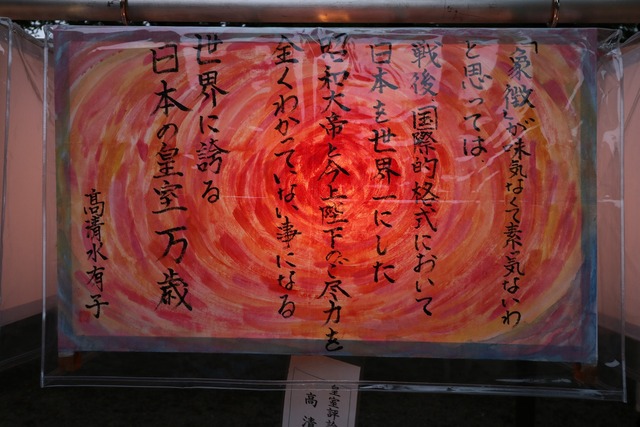 「象徴」が味気なくて素気ないわ
と思っては、
戦後、国際的格式において
日本を世界一にした
昭和大帝と今上陛下のご尽力を
全くわかっていない事になる
世界に誇る
日本の皇室一万歳
高清水有子
皇室評論
高清